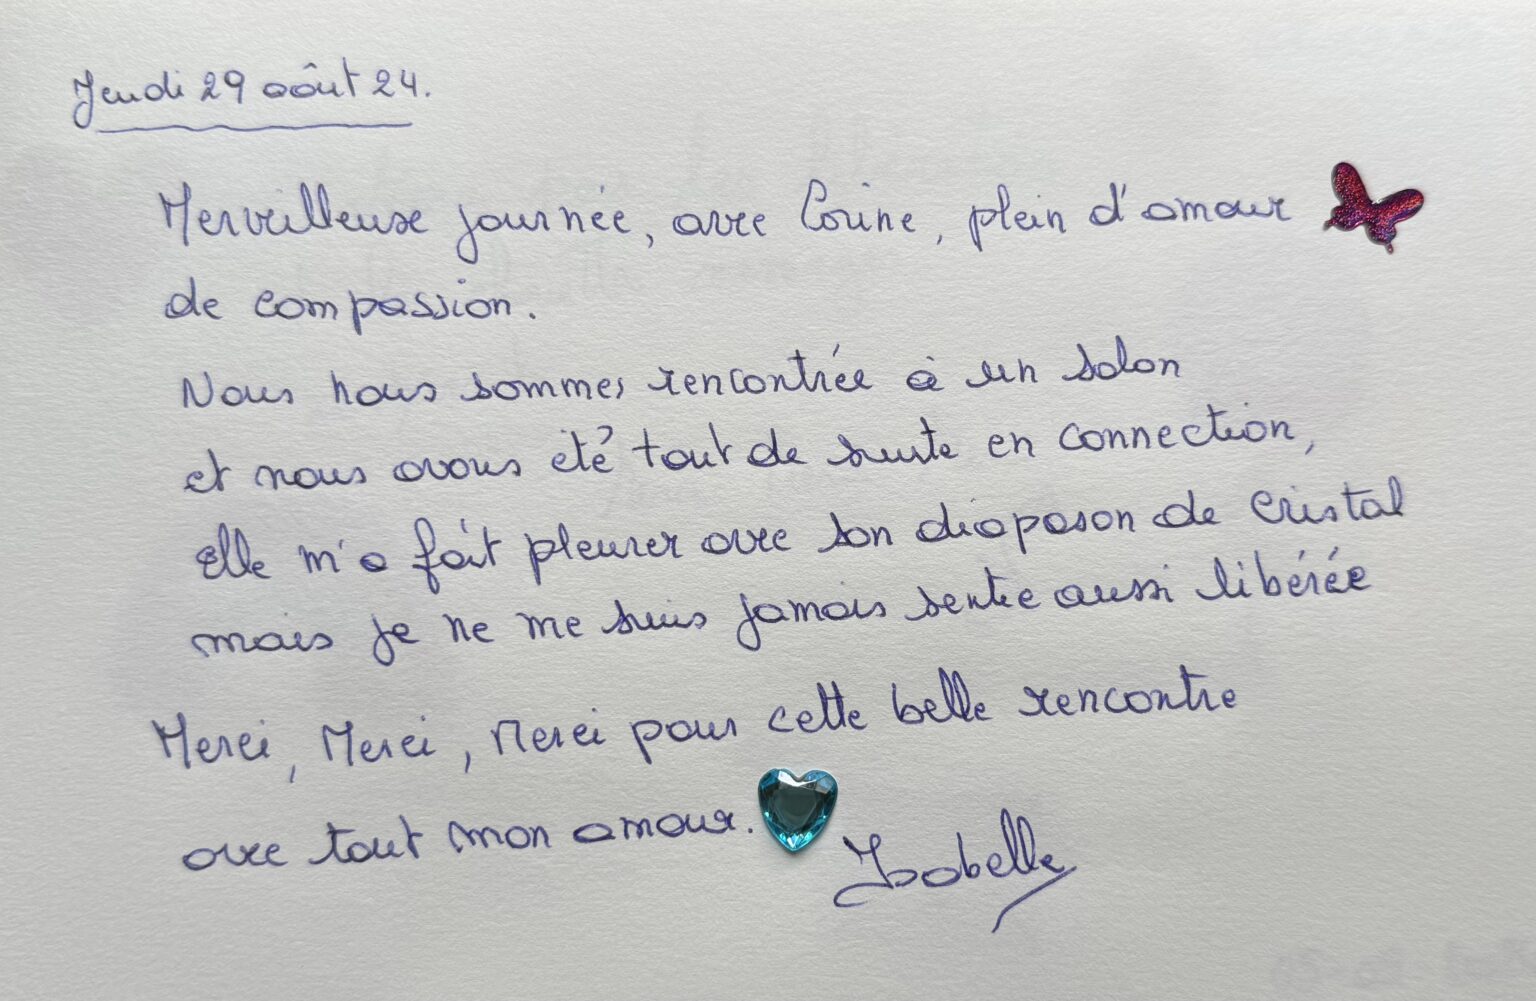 Jeudi 29 août 24.
Merveilleuse journée, avec Corine, plein d'amour
de compassion.
Nous nous sommes rencontrée à un salon
et nous avons été tout de suite en connection,
Elle m'a fait pleurer avec son diapason de cristal
mais je ne me suis jamais sentie aussi libérée
Merci, Merci, Merci pour cette belle rencontre
avec tout mon amour.
Isabelle